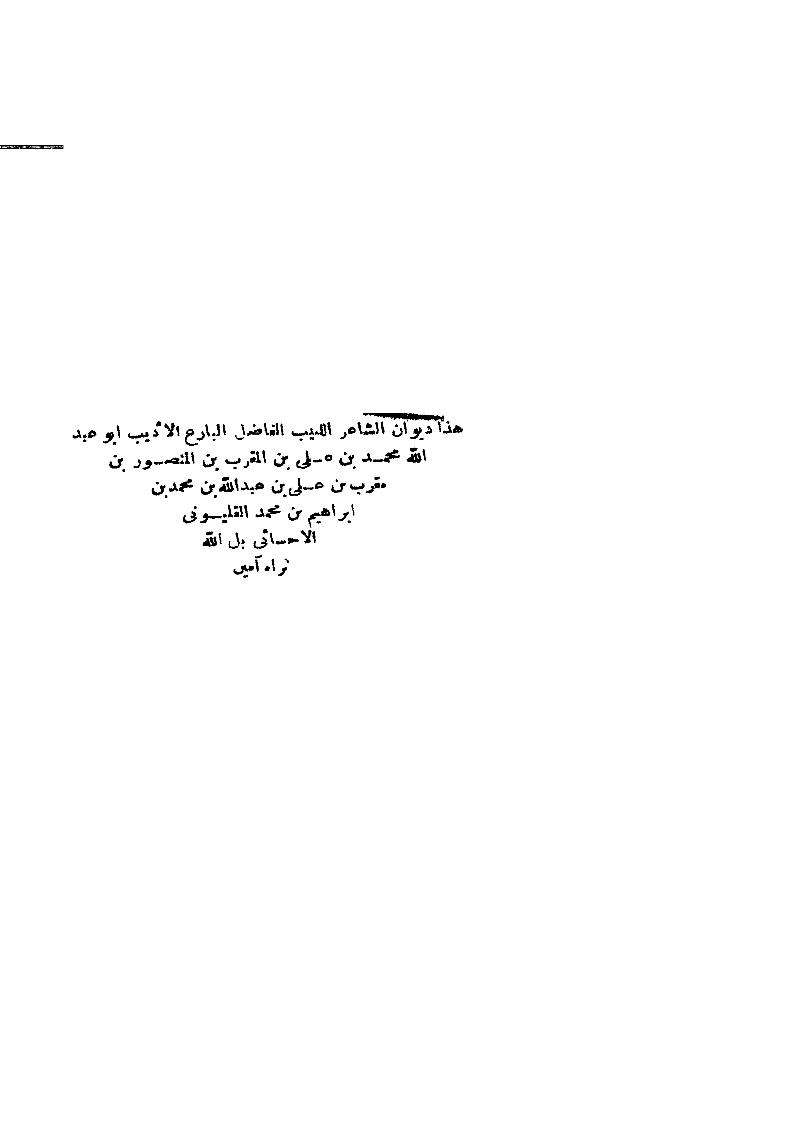 هذا ديوان الشاعر اللبيب الفاضل البارع الأديب ابو عبد
الله محمد بن على بن المقرب بن المنصور بن
مقرب بن على بن عبدالله بن محمد بن
ابراهيم بن محمد القليونى
الاحسائى بل الله
ثراه آمين